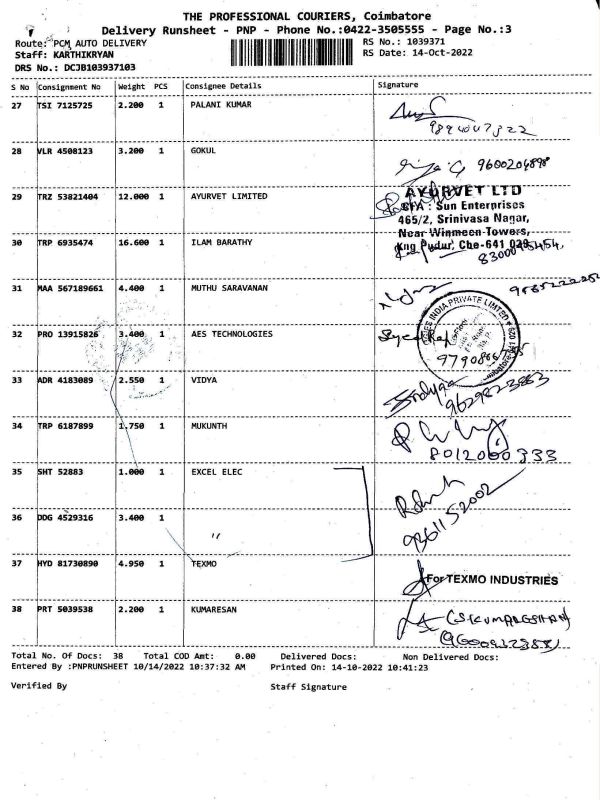 THE PROFESSIONAL COURIERS, Coimbatore
Delivery Runsheet - PNP - Phone No.:0422-3505555 - Page No.:3
Route: PCM AUTO DELIVERY
RS No.: 1039371
Staff: KARTHIKRYAN
RS Date: 14-Oct-2022
DRS No.: DCJB103937103
S No Consignment No Weight PCS Consignee Details Signature
27 TSI 7125725 2.200 1 PALANI KUMAR
28 VLR 4508123 3.200 1 GOKUL
9600204898
29 TRZ 53821404 12.000 1 AYURVET LIMITED
AYURVET LTD
CFA : Sun Enterprises
465/2, Srinivasa Nagar,
Near Winmeen Towers,
Kng Pudur, Cbe-641
30 TRP 6935474 16.600 1 ILAM BARATHY
31 MAA 567189661 4.400 1 MUTHU SARAVANAN
32 PRO 13915826 3.400 1 AES TECHNOLOGIES
INDIA PRIVATE LIMITED
33 ADR 4183089 2.550 1 VIDYA
34 TRP 6187899 1.750 1 MUKUNTH
8012000333
35 SHT 52883 1.000 1 EXCEL ELEC
36 DDG 4529316 3.400 1 "
9361152002
37 HYD 81730890 4.950 1 TEXMO
For TEXMO INDUSTRIES
38 PRT 5039538 2.200 1 KUMARESAN
Total No. Of Docs: 38 Total COD Amt: 0.00 Delivered Docs: Non Delivered Docs:
Entered By :PNPRUNSHEET 10/14/2022 10:37:32 AM Printed On: 14-10-2022 10:41:23
Verified By Staff Signature